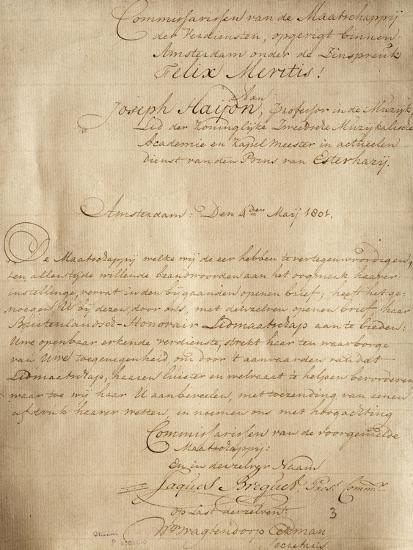 Commissarissen van de Maatschappij
der Verdiensten, opgerigt binnen
Amsterdam onder de Zinspreuk
Felix Meritis!
Aan
Joseph Haijdn, Professor in de Muzijk,
Lid der Koninglijke Zweedsche Muzijkaliesche
Academie en Kapel Meester in actueelen
Dienst van den Prins van Esterhazij.
Amsterdam: Den 4den Maij 1801.
De Maatschappij welke wij de eer hebben te vertegenwoordigen,
ten allen tijde willende beandwoorden aan het oogmerk haarer
instellinge, vervat in den bijgaanden openen brief, heeft het ge-
noegen U bij dezen door ons, met derzelven openen brief haar
Buitenlandsch-Honorair Lidmaatschap aan te bieden:
Uwe openbaar erkende verdienste, strekt haar ten waarborge
van Uwe toegenegenheid, om door 't aanvaarden van dat
Lidmaatschap, haaren luister en welvaart te helpen bevorderen
waar toe wij haar U aanbeveelen, met toezending van eenen
afdruk haarer wetten, en noemen ons met hoogachting
Commissarissen van de voorgemelde
Maatschappij:
En in derzelver Naam
Jaques Breguet Pres. Commrs.
Op Last derzelven:
Wm Wragtendorp Eekman
Secretaris
3